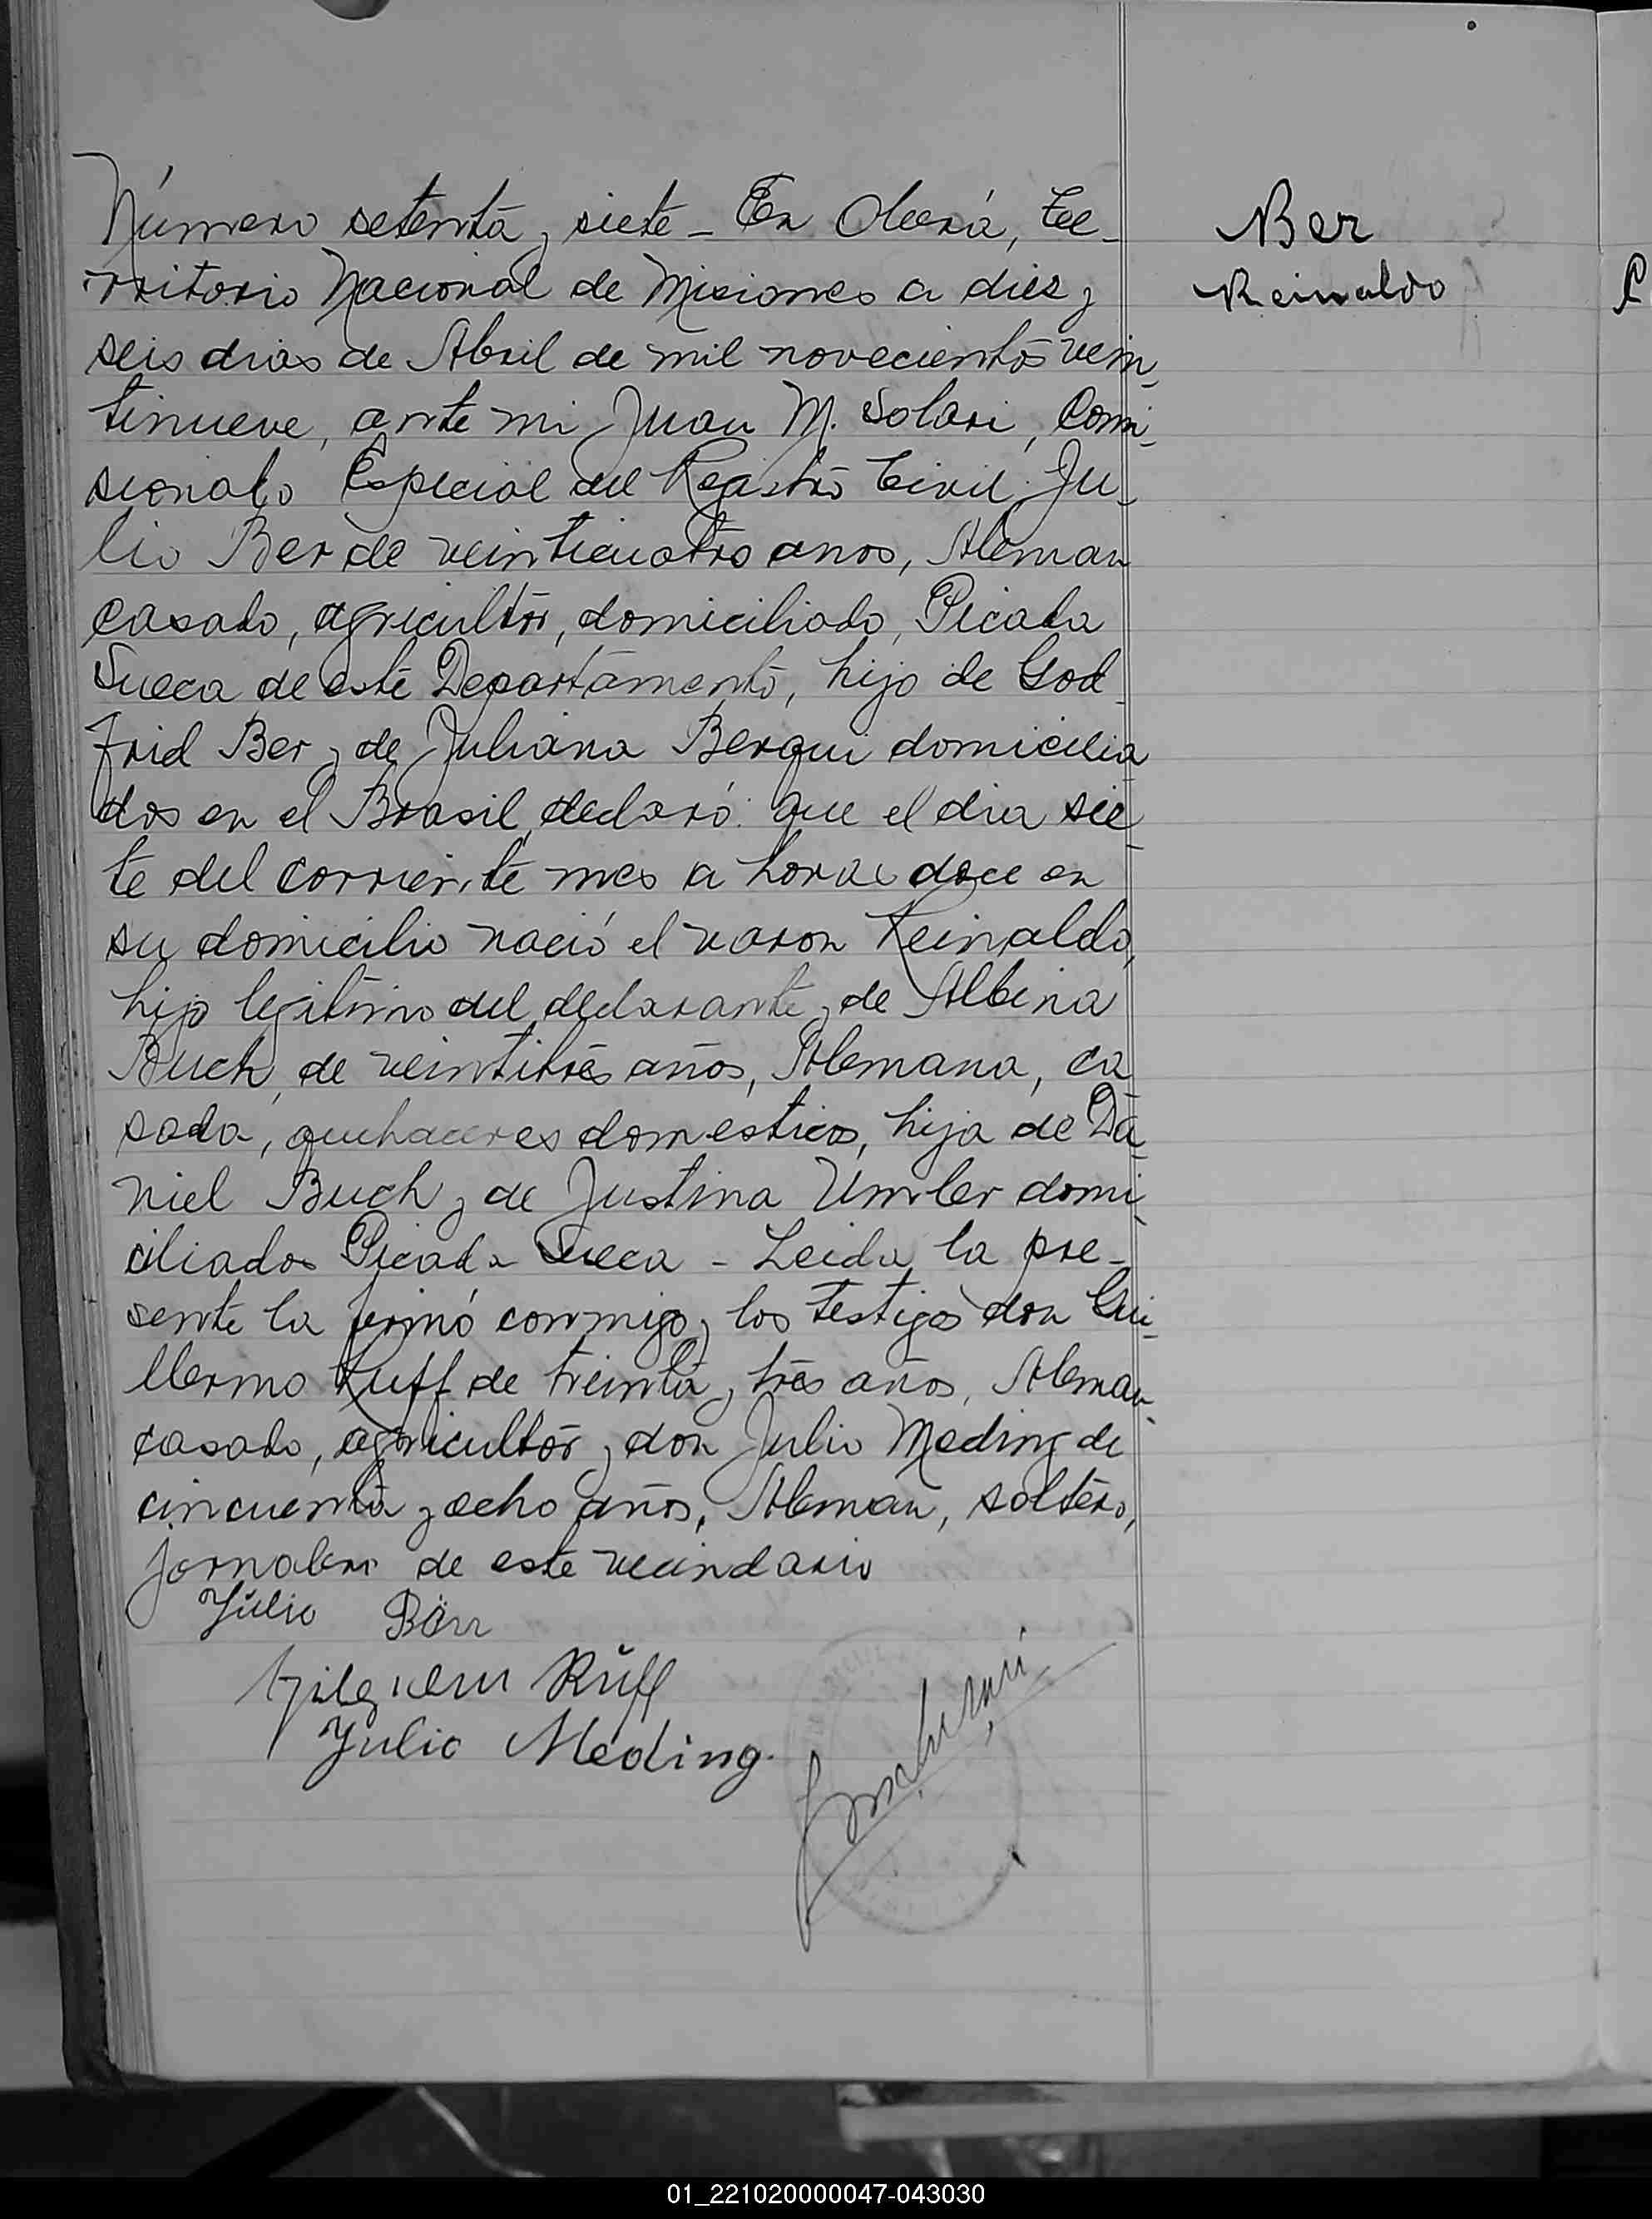 Número setenta y siete - En Oberá, Te-
rritorio Nacional de Misiones a diez y
seis dias de Abril de mil novecientos vein-
tinueve, ante mi Juan M. Solari, Comi-
sionado Especial del Registro Civil, Ju-
lio Ber de veinticuatro anos, Aleman
casado, agricultor, domiciliado, Picada
Sueca de este Departamento, hijo de God-
frid Ber y de Juliana Berqui domicilia-
dos en el Brasil, declaró: que el dia sie-
te del corriente mes a horas doce en
su domicilio nació el varon Reinaldo,
hijo legitimo del declarante y de Albina
Buch, de veintitres años, Alemana, ca-
sada, quehaceres domesticos, hija de Da-
niel Buch y de Justina Umler domi-
ciliados Picada Sueca - Leida la pre-
sente la firmó conmigo y los testigos don Gui-
llermo Ruff de treinta y tres años, Aleman
casado, agricultor y don Julio Meding de
cincuenta y ocho años, Aleman, soltero,
jornalero de este vecindario
Júlio Bärr
Ruff
Julio Meding.
Ber
Reinaldo
01_221020000047-043030